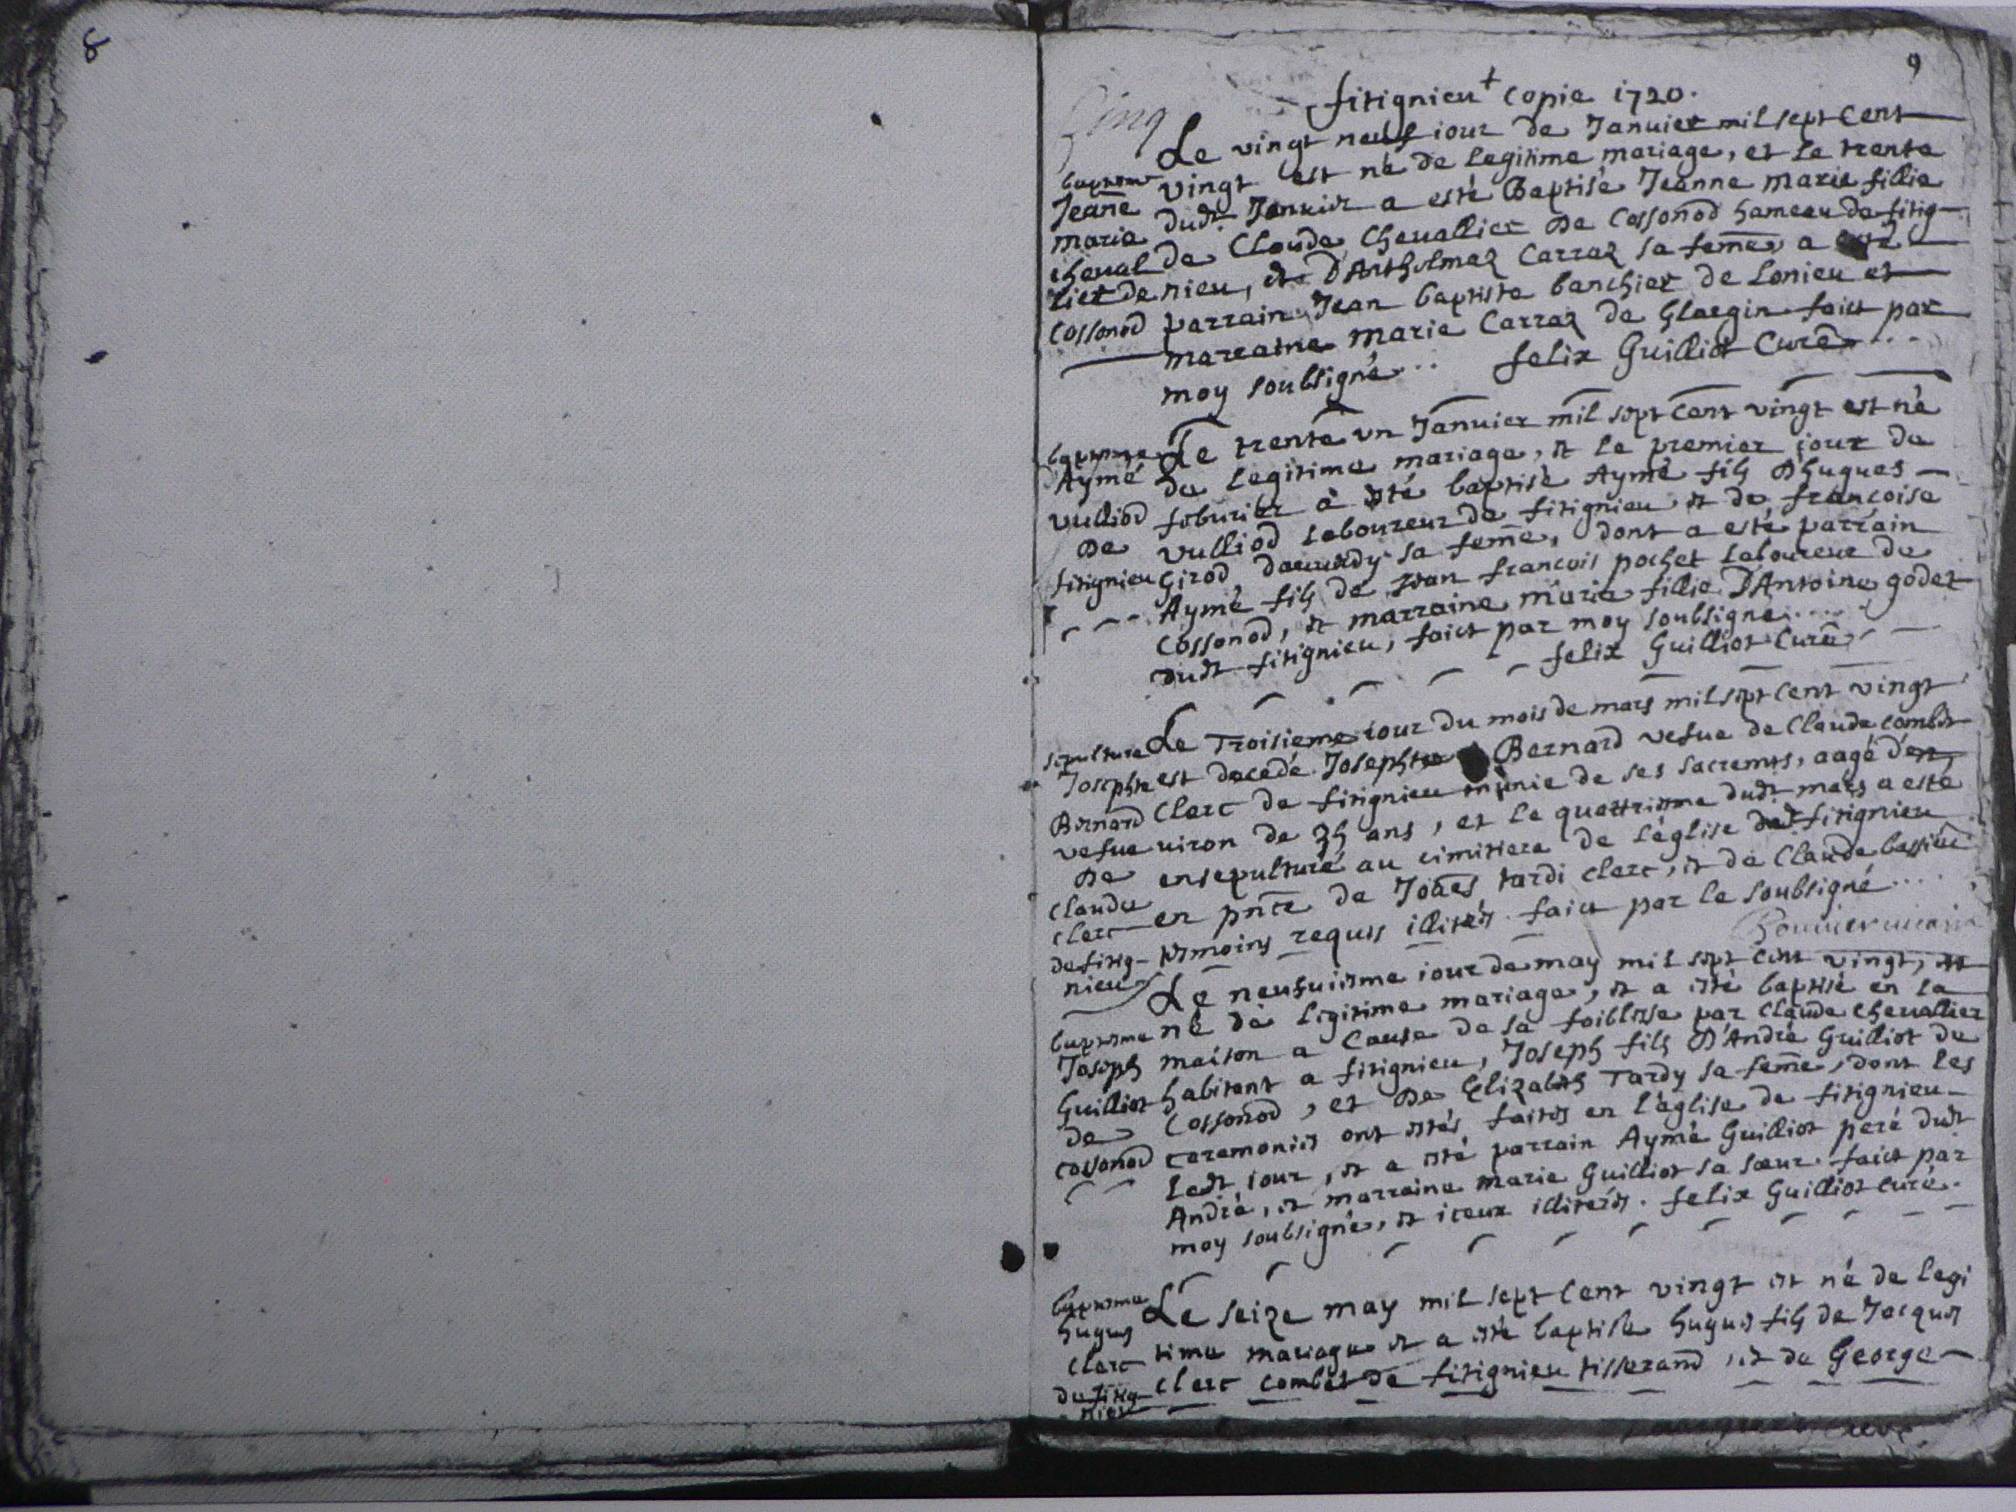 8
9
fitignieu + Copie 1720.
Le vingt neuf iour de Januier mil sept Cent
vingt est né de legitime mariage, et le trente
dudt Januier a esté Baptisée Jeanne marie fillie
de Claude Cheuallier De Cossonod hameau de fitig-
nieu, et d'Antholmaz Carraz sa feme a esté
parrain Jean baptiste banchier de Lonieu et
marraine marie Carraz de Glargin faict par
moy soubsigné... felix Guilliot Curé...
baptesme
Jeane
marie
cheual
lier de
Cossonod
Le trente vn Januier mil sept Cent vingt est né
de legitime mariage, et le premier jour de
feburier a esté baptisé Aymé fils d'hugues
vulliod laboureur de fitignieu et de francoise
Girod sa feme, dont a esté parrain
Aymé fils de Jean francois pochet laboureur de
Cossonod, et marraine marie fillie D'Antoine godet
dudt fitignieu, faict par moy soubsigné....
felix Guilliot Curé
baptesme
Aymé
vulliod
De
fitignieu
Le Troisieme iour du mois de mars mil sept Cent vingt
est decedé Josephte Bernard vefue de Claude combet
Clerc de fitignieu munie de ses sacremts, aagé d'en,
uiron de 35 ans, et le quattriesme dudt mars a esté
ensepulturé au cimitiere de l'église dudt fitignieu
en pnce de Joães tardi clerc, et de Claude
tesmoins requis illiterés faict par le soubsigné....
sepulture
Josephte
Bernard
vefue
De
Claude
clerc
de fitig-
nieu
Le neufuiesme iour de may mil sept cent vingt, est
né de legitime mariage, et a esté baptisé en la
maison a cause de sa foiblesse par Claude Cheuallier
habitant a fitignieu, Joseph fils D'André Guilliot de
Cossonod, et De Elizabeth Tardy sa feme, dont les
ceremonies ont estés faites en l'église de fitignieu
ledt iour, et a esté parrain Aymé Guilliot pere dudt
André, et marraine marie Guilliot sa sœur. faict par
moy soubsigné, et iceux illiterés. felix Guilliot curé.
baptesme
Joseph
Guilliot
de
cossonod
Le seize may mil sept Cent vingt est né de legi
time mariage et a esté baptisé hugues fils de Jacques
Clerc combet de fitignieu tisserand, et de George
baptesme
hugues
Clerc
de fitig-
nieu